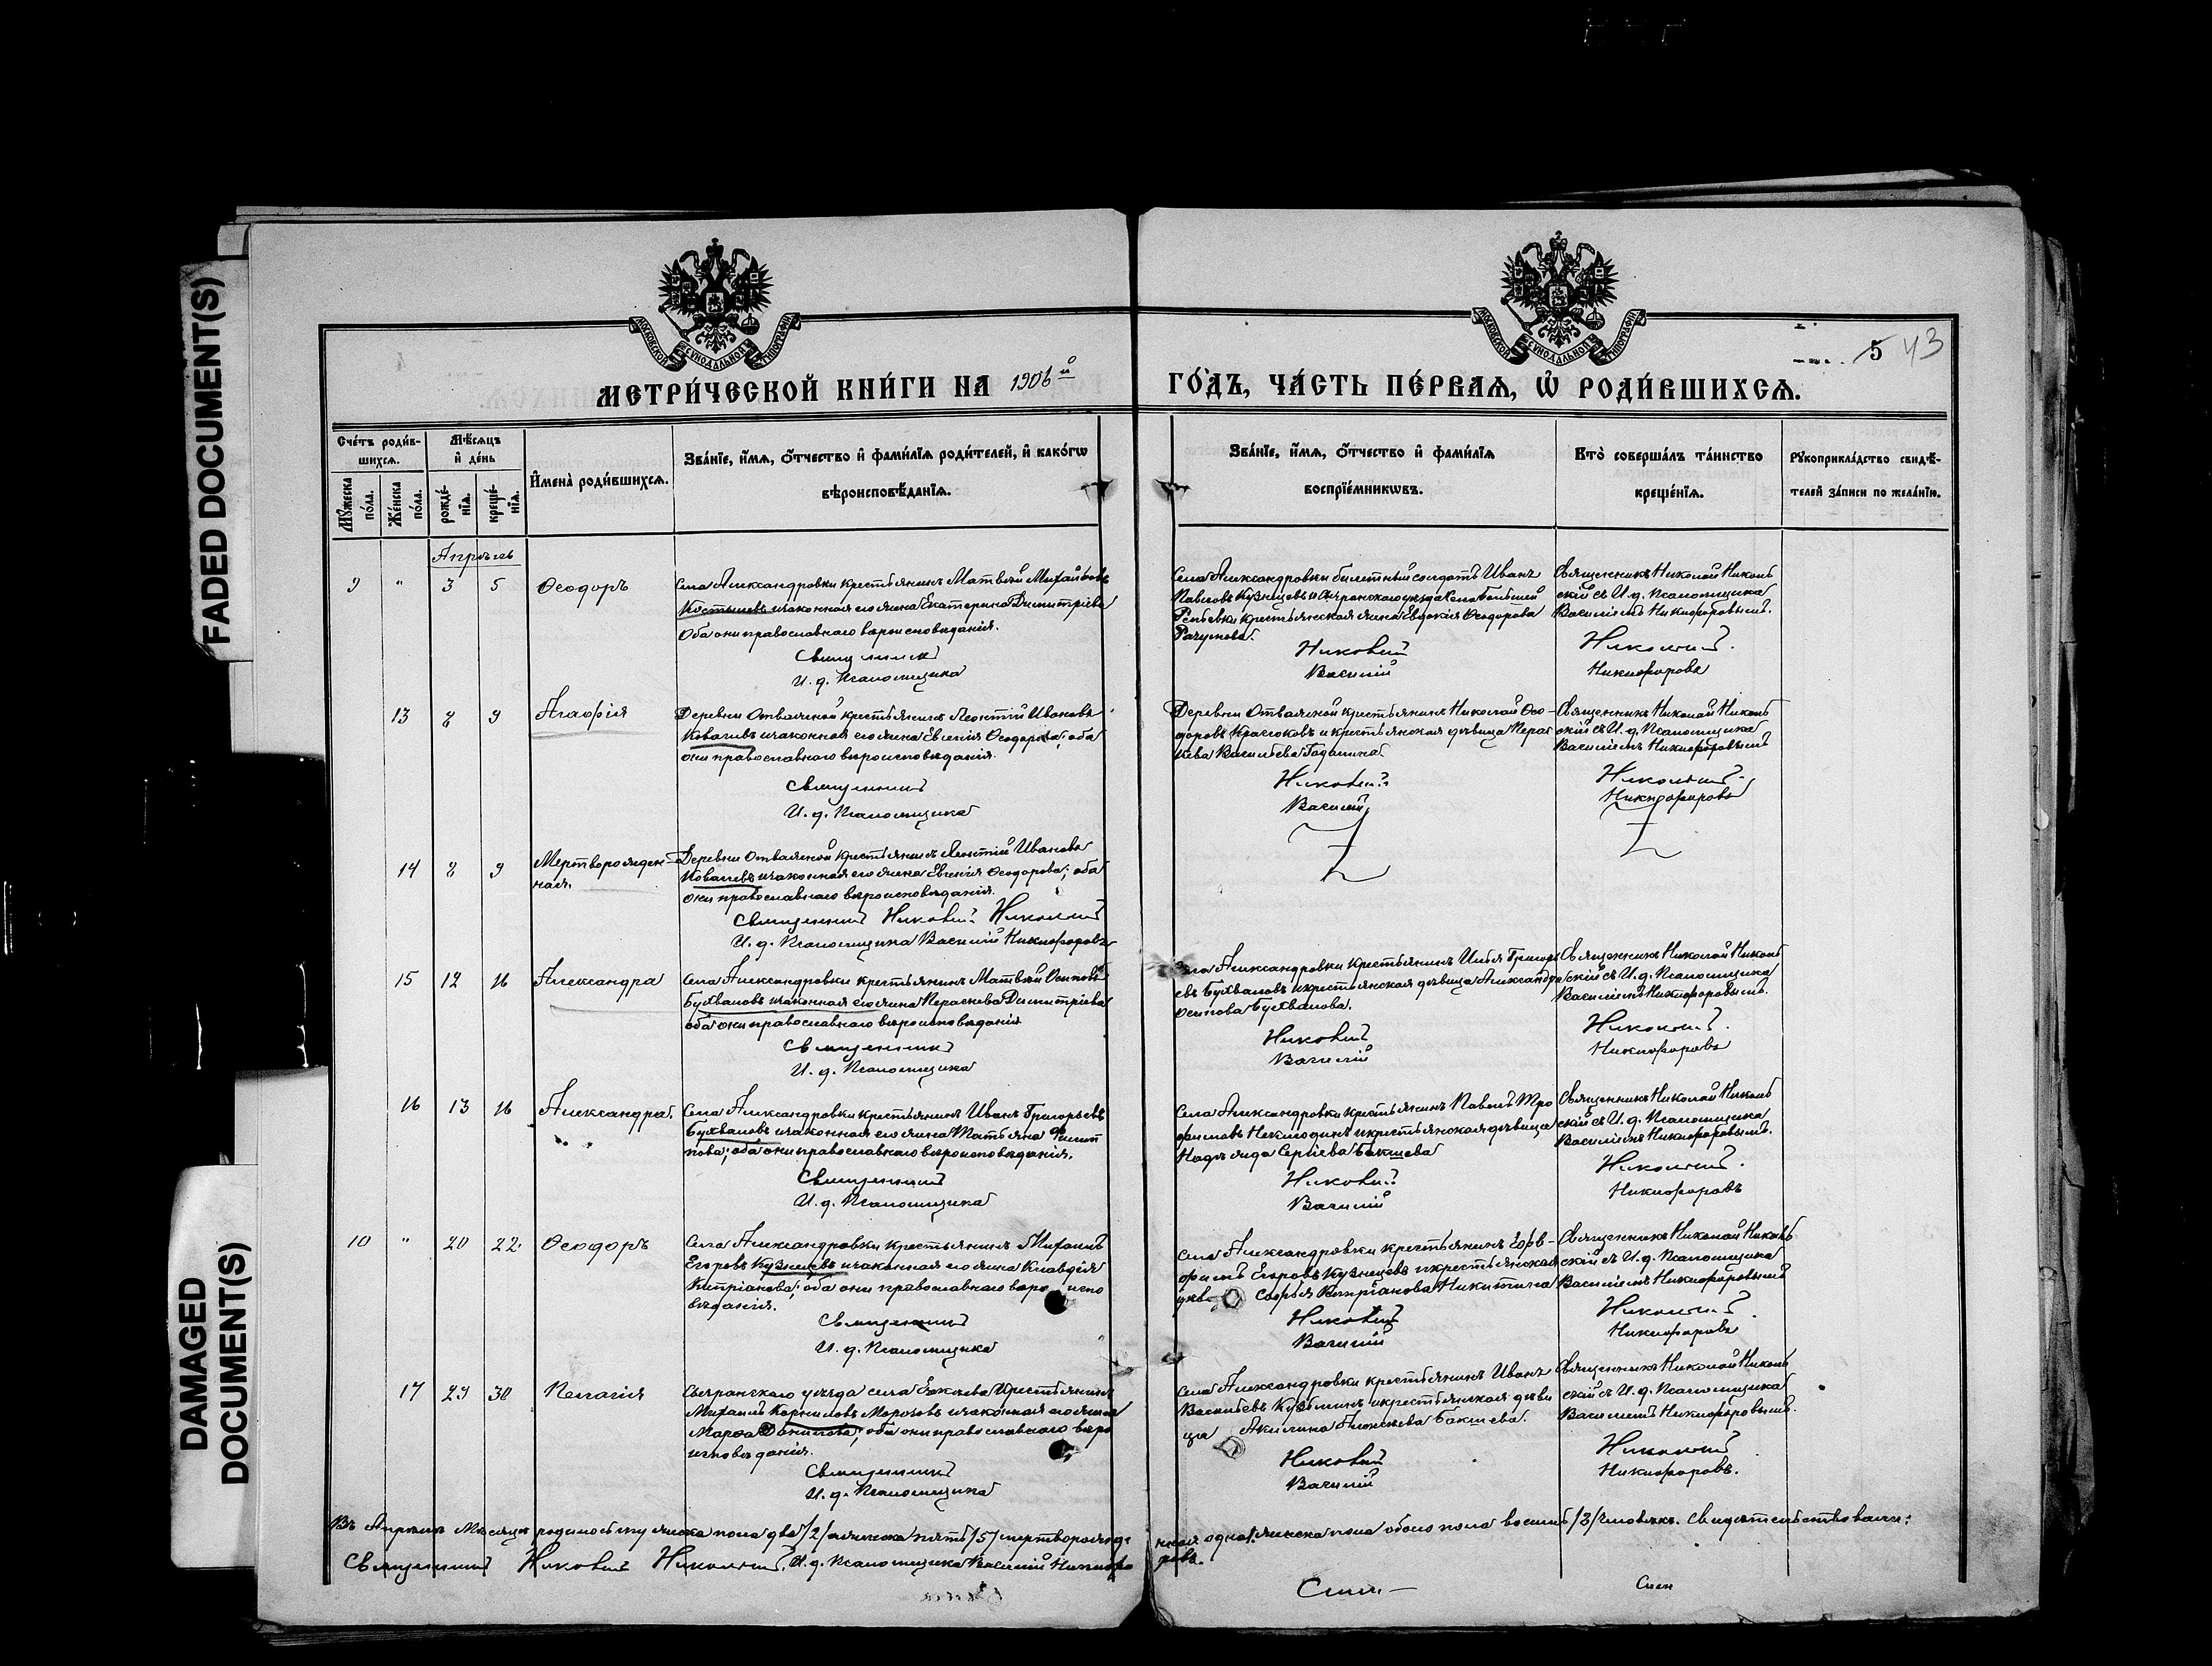 FADED DOCUMENT(S)
DAMAGED
DOCUMENT(S)
МОСКОВСКОЙ СѴНОДАЛЬНОЙ ТИПОГРАФІИ
МОСКОВСКОЙ СѴНОДАЛЬНОЙ ТИПОГРАФІИ
5 43
МЕТРИ́ЧЕСКОЙ КНИ́ГИ НА 1906й ГО́ДЪ, ЧА́СТЬ ПЕ́РВАѦ, Ѡ҆ РОДИ́ВШИХСѦ.
Сче́тъ роди́в-
шихсѧ.
Мꙋ́жеска по́ла.
Же́нска по́ла.
Мѣ́сѧцъ
и҆ де́нь
рожде́-
нїѧ.
креще́-
нїѧ.
И҆мена̀ роди́вшихсѧ.
Зва́нїе, и҆́мѧ, ѻ҆́тчество и҆ фами́лїѧ роди́телей, и҆ како́гѡ
вѣроисповѣ́данїѧ.
Зва́нїе, и҆́мѧ, ѻ҆́тчество и҆ фами́лїѧ
воспрїе́мникѡвъ.
Кто̀ соверша́лъ та́инство
креще́нїѧ.
Рꙋкоприкла́дство свидѣ́-
телей за́писи по жела́нїю.
Апрѣль
9 " 3 5 Ѳеодоръ
Села Александровки крестьянинъ Матвѣй Михайловъ
Костылевъ и законная его жена Екатерина Димитріева
Оба они православнаго вѣроисповѣданія.
Священник
И. д. Псаломщика
Села Александровки билетный солдатъ Иванъ
Павловъ Кузнецовъ и Сызранскаго уѣзда Села Большой
Репьевки крестьянская жена Евдокія Ѳеодорова
Николай
Василій
Священникъ Николай Николь
скій съ И. д. Псаломщика
Василіемъ Никифоровымъ.
Никольскій.
Никифоровъ
13 8 9 Агафія
Деревни Отважной крестьянинъ Леонтій Ивановъ
Ковалевъ и законная его жена Евгенія Ѳеодорова; оба
они православнаго вѣроисповѣданія.
Священникъ
И. д. Псаломщика
Деревни Отважной крестьянинъ Николай Ѳео-
доровъ Краснковъ и крестьянская дѣвица Парас
кева Васильева
Николай
Василій
Священникъ Николай Николь
скій съ И. д. Псаломщика
Василіемъ Никифоровымъ
Никольскій
Никифоровъ
14 8 9 Мертворожден-
ная.
Деревни Отважной крестьянинъ Леонтій Ивановъ
Ковалевъ и законная его жена Евгенія Ѳеодорова; оба
они православнаго вѣроисповѣданія.
Священникъ Николай Никольскій
И. д. Псаломщика Василій Никифоровъ
15 12 16 Александра
Села Александровки крестьянинъ Матвѣй Осиповъ
Бухваловъ и законная его жена Параскева Димитріева
оба они православнаго вѣроисповѣданія
Священникъ
И. д. Псаломщика
Села Александровки крестьянинъ Илья Григорь
евъ Бухваловъ и крестьянская дѣвица Александра
Осипова Бухвалова.
Николай
Василій
Священникъ Николай Николь
скій съ И. д. Псаломщика
Василіемъ Никифоровымъ.
Никольскій.
Никифоровъ
16 13 16 Александра.
Села Александровки крестьянинъ Иванъ Григорьевъ
Бухваловъ и законная его жена Татьяна Филип
пова; оба они православнаго вѣроисповѣданія.
Священникъ
И. д. Псаломщика
Села Александровки крестьянинъ Павелъ Тро
фимовъ и крестьянская дѣвица
Надежда Сергіева Бакшева
Николай
Василій
Священникъ Николай Николь
скій съ И. д. Псаломщика
Василіемъ Никифоровымъ.
Никольскій.
Никифоровъ
10 " 20 22. Ѳеодоръ
Села Александровки крестьянинъ Михаилъ
Егоровъ Кузнецовъ и законная его жена Клавдія
Кипріанова; оба они православнаго вѣро испо
вѣданія.
Священникъ
И. д. Псаломщика
Села Александровки крестьянинъ
Егоровъ Кузнецовъ и крестьянская
Софья Кипріанова Никитина
Николай
Василій
Священникъ Николай Николь
скій съ И. д. Псаломщика
Василіемъ Никифоровымъ
Никольскій.
Никифоровъ
17 29 30 Пелагія
Сызранскаго уѣзда села крестьянинъ
Михаилъ Корниловъ Морозовъ и законная его жена
Марѳа Данилова; оба они православнаго вѣро
исповѣданія.
Священникъ
И. д. Псаломщика
Села Александровки крестьянинъ Иванъ
Васильевъ Кузьминъ и крестьянская дѣви
ца Акилина Бакшева.
Николай
Василій
Священникъ Николай Николь
скій съ И. д. Псаломщика
Василіемъ Никифоровымъ.
Никольскій
Никифоровъ.
Въ Апрѣлѣ Мѣсяцѣ родилось мужска пола два /2/ женска пять /5/ мертворожде
нная одна /женска пола обоего пола восемь /8/ человѣкъ. Свидѣтельствовали:
Священникъ Николай Никольскій. И. д. Псаломщика Василій Никифо
ровъ.